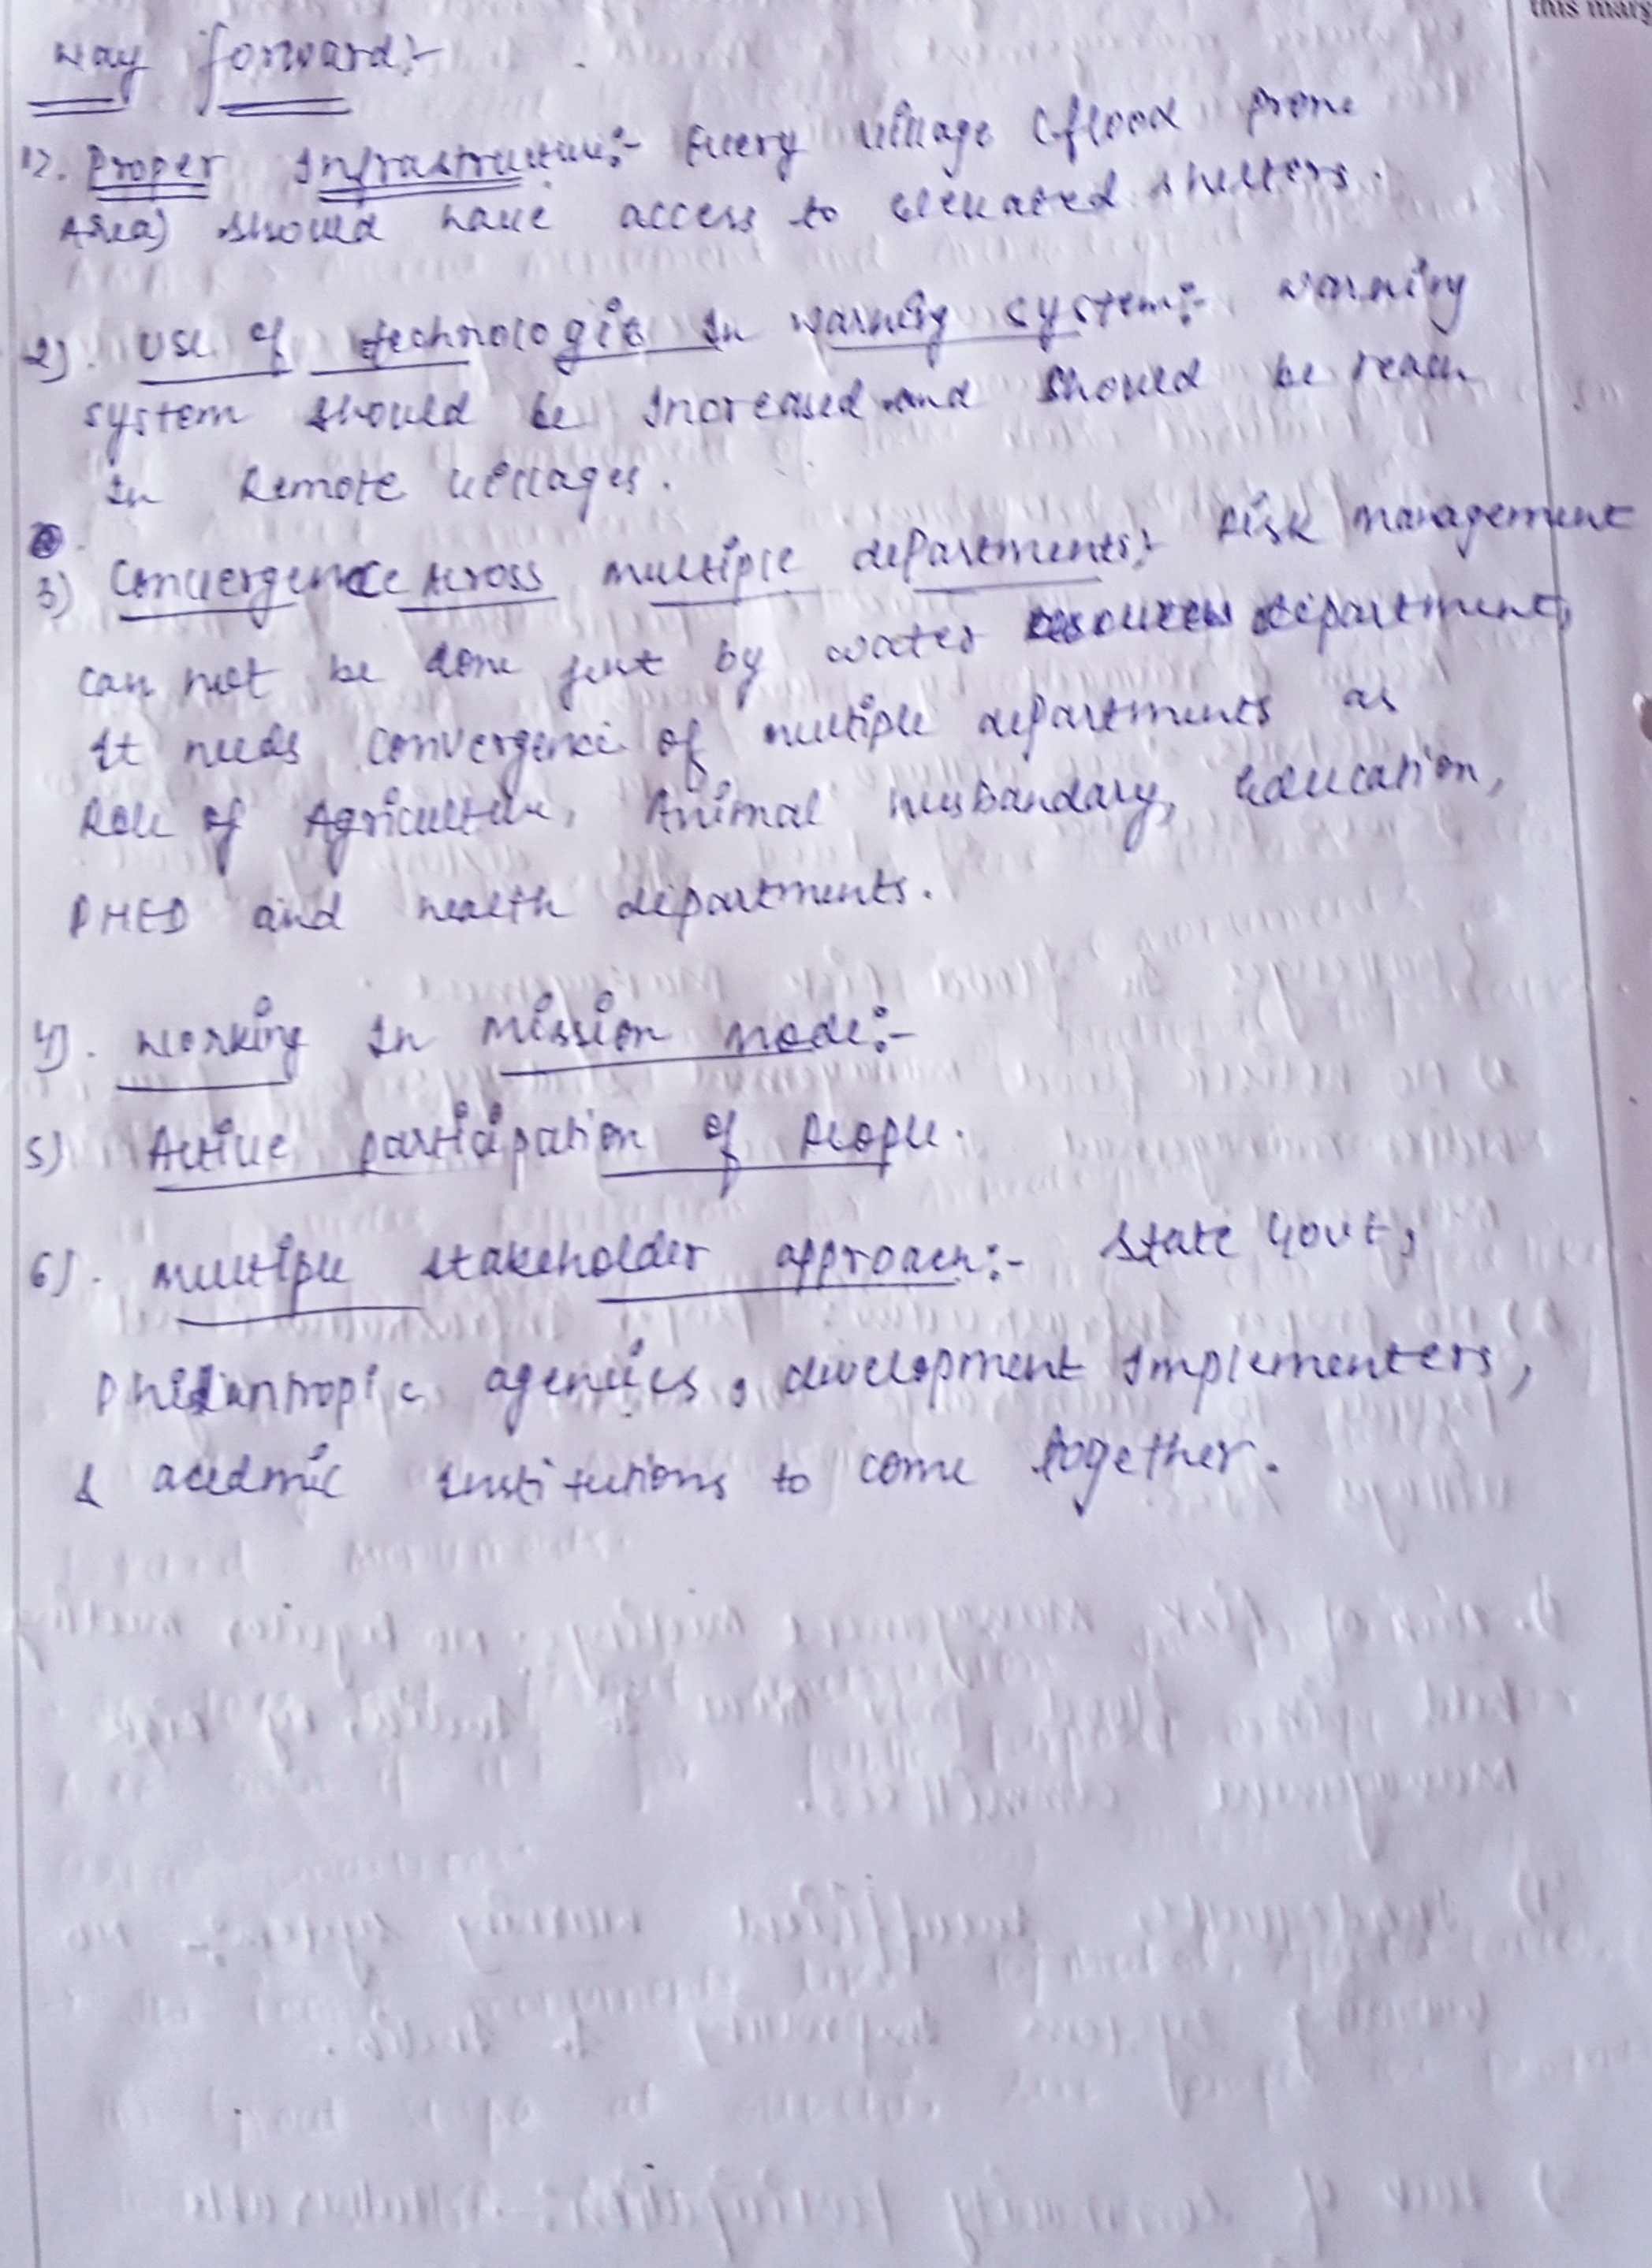 this mar
Way forward:-
1). Proper Infrastructure:- Every village (flood prone
Area) should have access to elevated shelters.
2). Use of technologies In warning system:- warning
system should be Increased and should be reach
In Remote villages.
3) Convergence Across multiple departments:- Risk management
can not be done just by water resources department,
It needs convergence of multiple departments as
Role of Agriculture, Animal Husbandary, Education,
PHED and health departments.
4). Working In Mission mode:-
5) Active participation of People.
6). Multiple stakeholder approach:- State Govt,
Philantropic agencies, development Implementers,
& acedmic Institutions to come together.